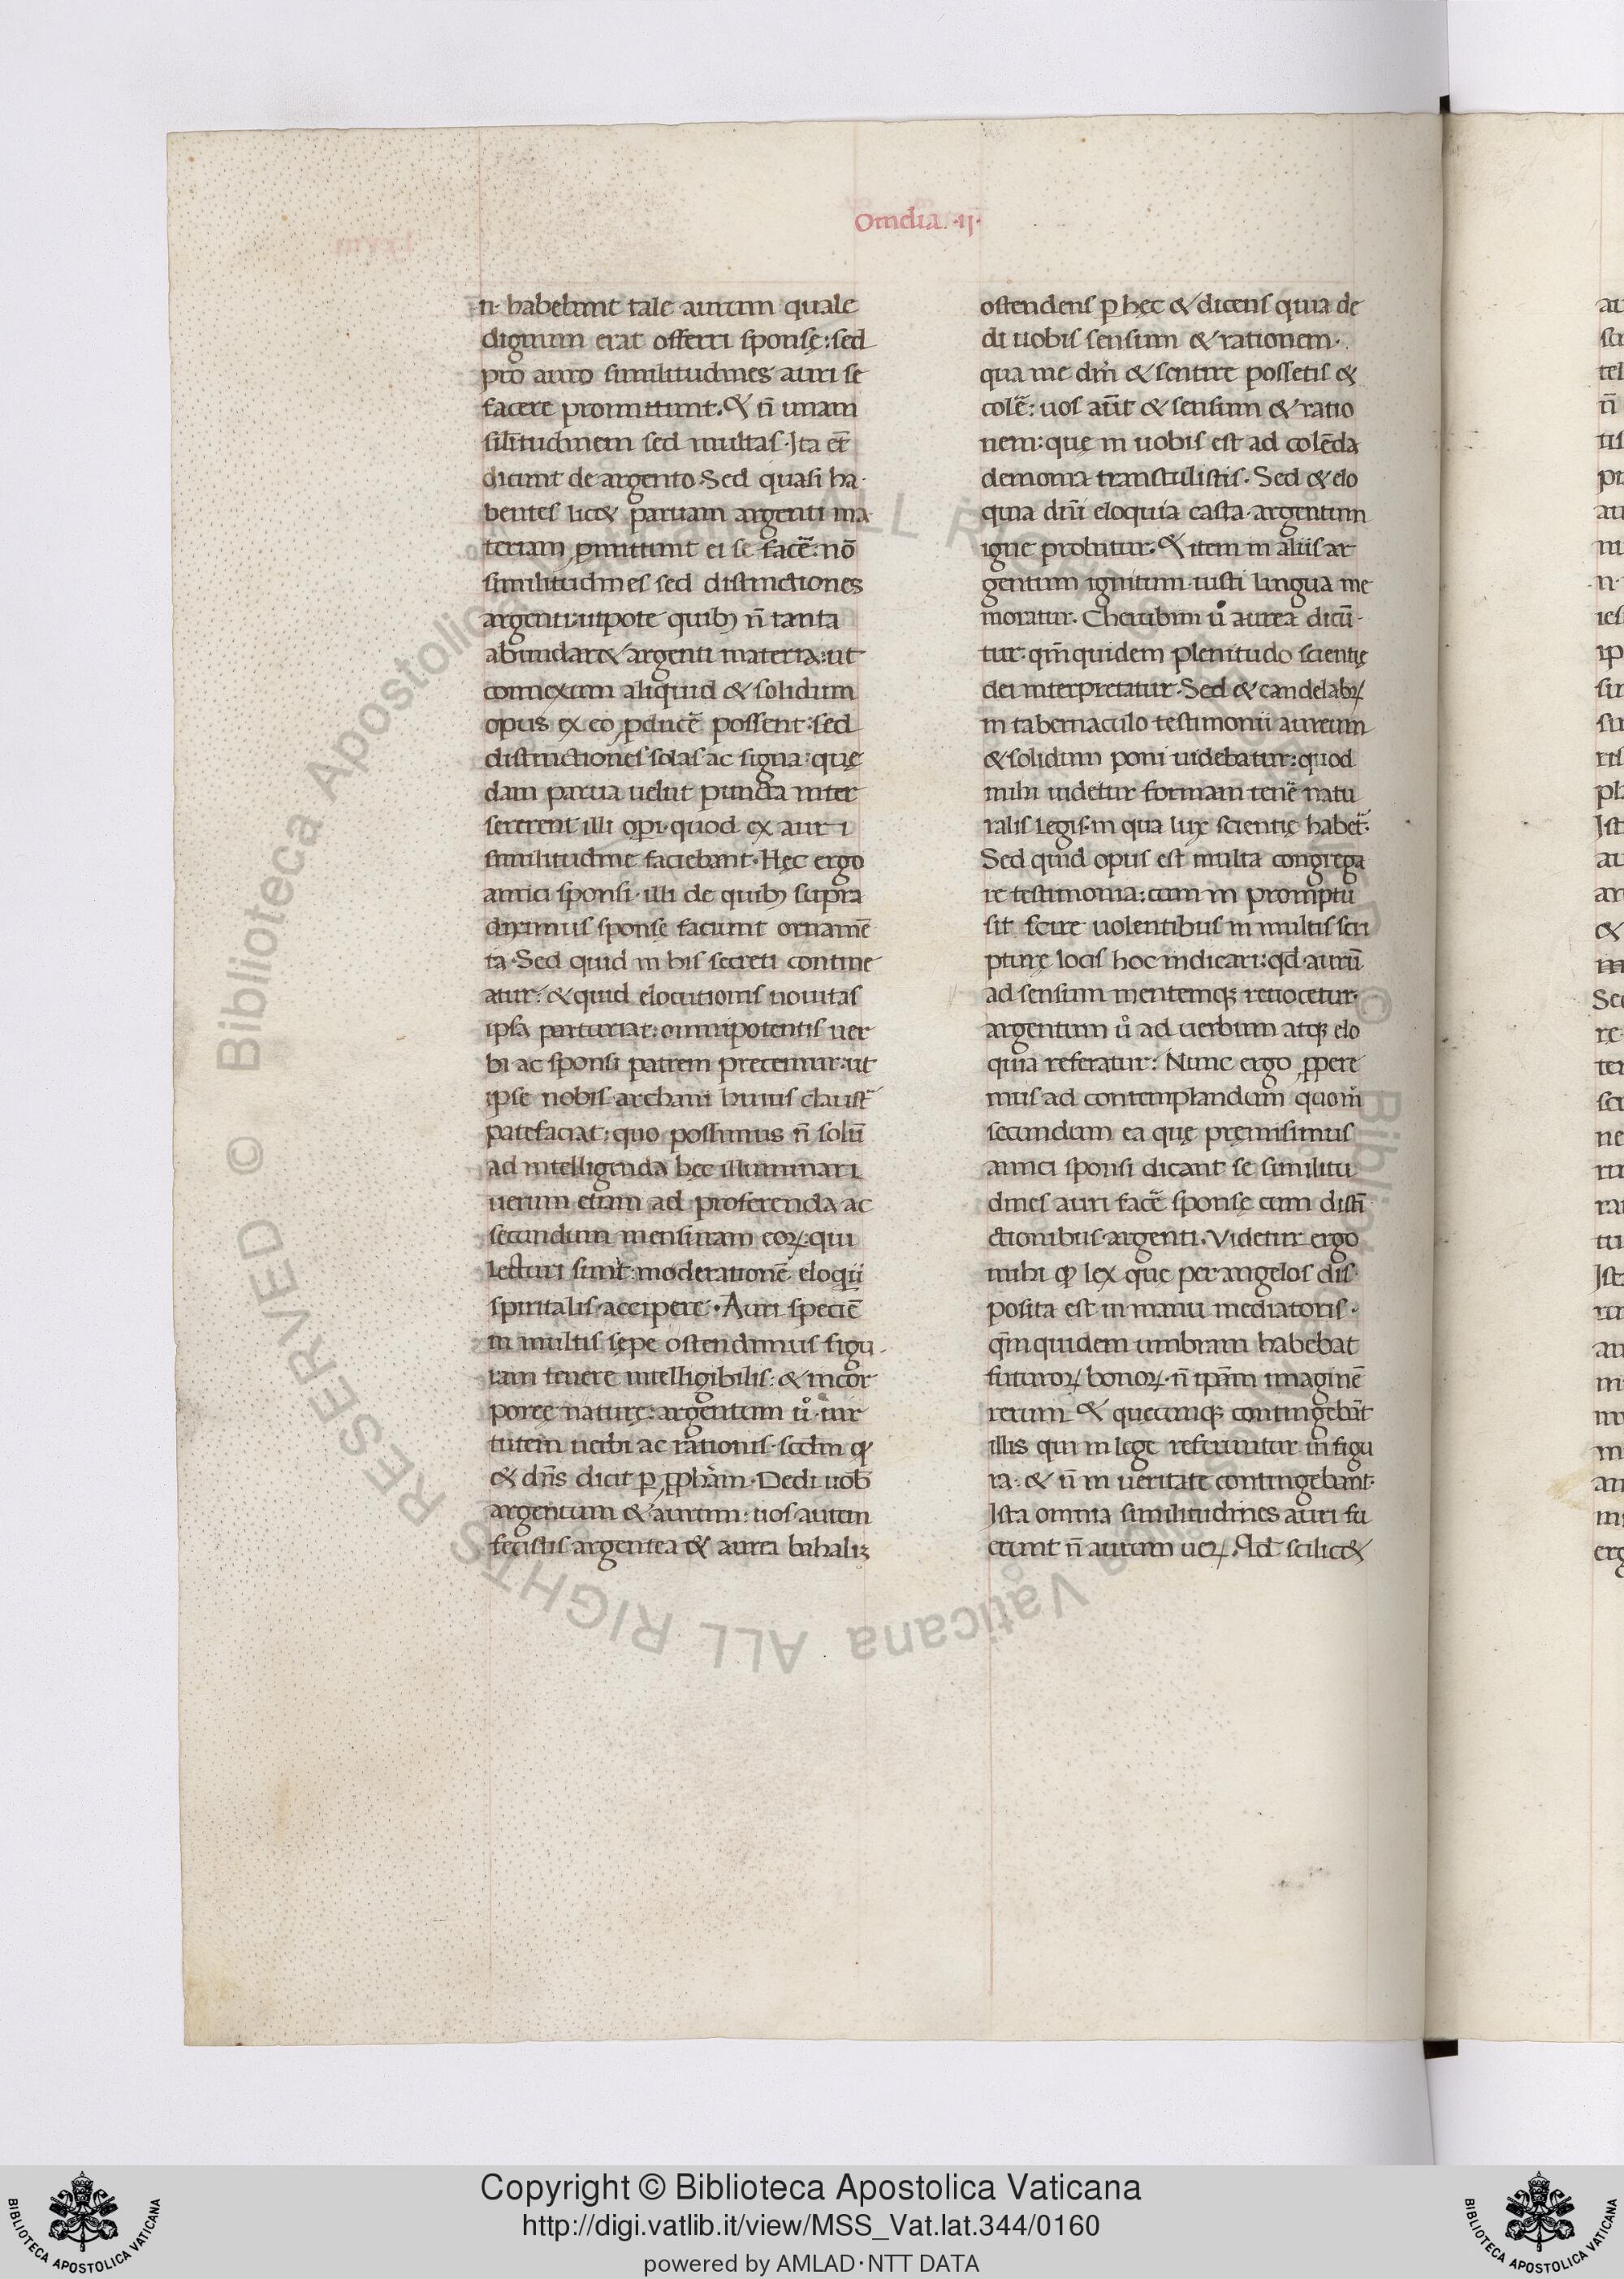 Omelia .ij.
n̄ habebant tale aurum quale
dignum erat offerri sponsę: sed
pro auro similitudines auri se
facere promittunt. & n̄ unam
silitudinem sed multas. Ita et̄
dicunt de argento. Sed quasi ha
bentes lic& paruam argenti ma
teriam ꝓmittunt ei se facē: nō
similitudines sed distinctiones
argenti: utpote quibꝫ n̄ tanta
abundar& argenti materia: ut
connexum aliquid & solidum
opus ex eo ꝓducē possent: sed
distinctiones solas ac signa quę
dam parua uelut puncta inter
sererent illi opi. quod ex auri
similitudine faciebant. Hęc ergo
amici sponsi. illi de quibꝫ supra
diximus sponsę faciunt ornamē
ta. Sed quid in his secreti contine
atur. & quid elocutionis nouitas
ipsa parturiat: omnipotentis uer
bi ac sponsi patrem precemur. ut
ipse nobis archani huius claust̄
patefaciat: quo possimus n̄ solū
ad intelligenda hęc illuminari
uerum etiam ad proferenda ac
secundum mensuram eoꝝ: qui
lecturi sunt: moderationē eloqii
spiritalis accipere. Auri speciē
in multis sępe ostendimus figu
ram tenere intelligibilis: & incor
poreę naturę: argentum ů uir
tutem uerbi ac rationis. scdm ꝙ
& dn̄s dicit ꝑ ꝓpham. Dedi uob̄
argentum & aurum: uos autem
fecistis argentea & aurea bahaliꝫ
ostendens ꝑ hęc & dicens quia de
di uobis sensum & rationem.
qua me dm̄ & sentire possetis &
colē: uos aūt & sensum & ratio
nem: quę in uobis est ad colēda
demonia transtulistis. Sed & elo
quia dn̄i eloquia casta. argentum
igne probatur. & item in aliis ar
gentum ignitum iusti lingua me
moratur. Cherubim ů aurea dicū
tur. qm̄quidem plenitudo scientię
dei interpretatur. Sed & candelabꝝ
in tabernaculo testimonii aureum
& solidum poni uidebatur: quod
mihi uidetur formam tenē natu
ralis legis. in qua lux scientię habet̄.
Sed quid opus est multa congrega
re testimonia: cum in promptu
sit scire uolentibus in multis scri
pturę locis hoc indicari: qd aurū
ad sensum mentemqꝫ reuocetur.
argentum ů ad uerbum atqꝫ elo
quia referatur: Nunc ergo ꝓpere
mus ad contemplandum quom̊
secundum ea quę pręmisimus
amici sponsi dicant se similitu
dines auri facē sponsę cum distī
ctionibus argenti. Videtur ergo
mihi ꝙ lex que per angelos dis
posita est in manu mediatoris.
qm̄quidem umbram habebat
futuroꝝ bonoꝝ. n̄ ipsam imaginē
rerum & quecumqꝫ contingebāt
illis qui in lege referuntur in figu
ra. & n̄ in ueritate contingebant.
Ista omnia similitudines auri fu
erunt n̄ aurum ueꝝ. Ad scilic&
Copyright © Biblioteca Apostolica Vaticana
http://digi.vatlib.it/view/MSS_Vat.lat.344/0160
powered by AMLAD·NTT DATA
BIBLIOTECA APOSTOLICA VATICANA
BIBLIOTECA APOSTOLICA VATICANA
© Biblioteca Apostolica Vaticana ALL RIGHTS RESERVED